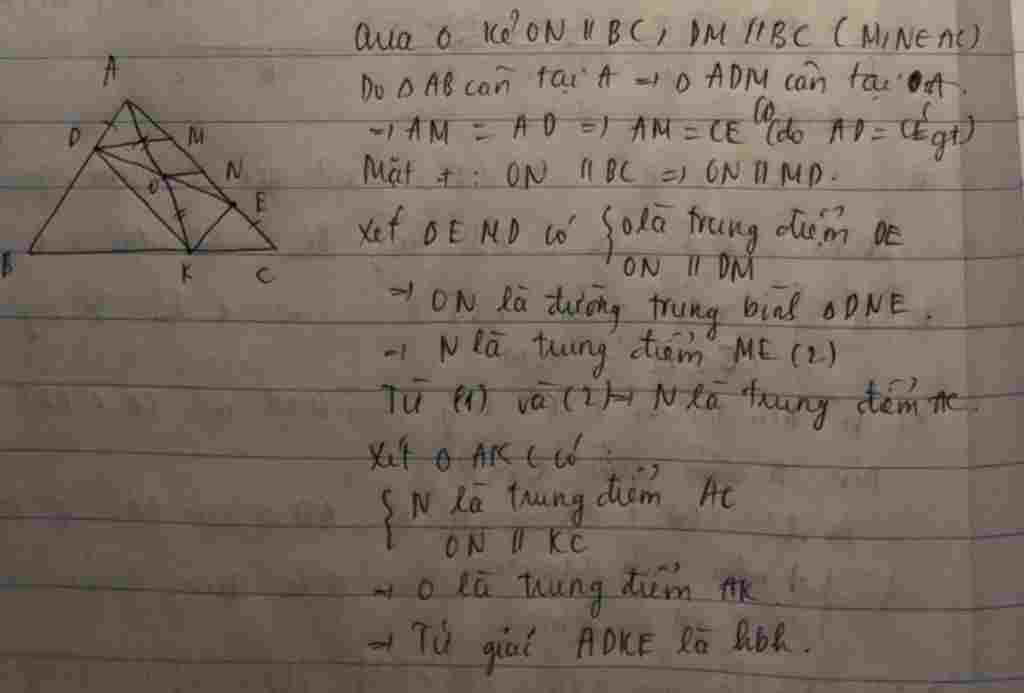 A
D
M
N
O
E
B
K
C
Qua O kẻ ON // BC, DM // BC (M, N ∈ AC)
Do Δ AB cân tại A → Δ ADM cân tại A.
→ AM = AD => AM = CE (1) (do AD = CE gt)
Mặt + : ON // BC => ON // MD.
Xét Δ EMD có { O là trung điểm DE
ON // DM
→ ON là đường trung bình Δ DNE.
→ N là trung điểm ME (2)
Từ (1) và (2) → N là trung điểm AC.
Xét Δ AKC có :
{ N là trung điểm AC
ON // KC
→ O là trung điểm AK
→ Tứ giác ADKE là hbh.